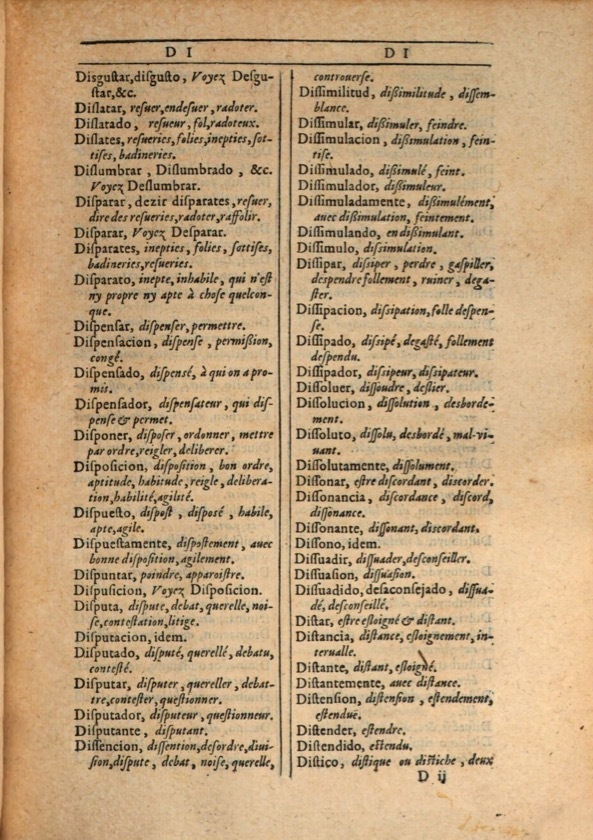 D I
Disgustar, disgusto, Voyez Desgu-
star, &c.
Dislatar, resuer, endesuer, radoter.
Dislatado, resueur, fol, radoteux.
Dislates, resueries, folies, inepties, sot-
tises, badineries.
Dislumbrar, Dislumbrado, &c.
Voyez Deslumbrar.
Disparar, dezir disparates, resuer,
dire des resueries, radoter, raffolir.
Disparar, Voyez Desparar.
Disparates, inepties, folies, sottises,
badineries, resueries.
Disparato, inepte, inhabile, qui n'est
ny propre ny apte à chose quelcon-
que.
Dispensar, dispenser, permettre.
Dispensacion, dispense, permißion,
congé.
Dispensado, dispensé, à qui on a pro-
mis.
Dispensador, dispensateur, qui dis-
pense & permet.
Disponer, disposer, ordonner, mettre
par ordre, reigler, deliberer.
Disposicion, disposition, bon ordre,
aptitude, habitude, reigle, delibera-
tion, habilité, agilité.
Dispuesto, dispost, disposé, habile,
apte, agile.
Dispuestamente, dispostement, auec
bonne disposition, agilement.
Dispuntar, poindre, apparoistre.
Dispusicion, Voyez Disposicion.
Disputa, dispute, debat, querelle, noi-
se, contestation, litige.
Disputacion, idem.
Disputado, disputé, querellé, debatu,
contesté.
Disputar, disputer, quereller, debat-
tre, contester, questionner.
Disputador, disputeur, questionneur.
Disputante, disputant.
Dissencion, dissention, desordre, diui-
sion, dispute, debat, noise, querelle,
D I
controuerse.
Dissimilitud, dißimilitude, dissem-
blance.
Dissimular, dißimuler, feindre.
Dissimulacion, dißimulation, fein-
tise.
Dissimulado, dißimulé, feint.
Dissimulador, dißimuleur.
Dissimuladamente, dißimulément,
auec dißimulation, feintement.
Dissimulando, en dißimulant.
Dissimulo, dissimulation.
Dissipar, dissiper, perdre, gaspiller,
despendre follement, ruiner, dega-
ster.
Dissipacion, dissipation, folle despen-
se.
Dissipado, dissipé, degasté, follement
despendu.
Dissipador, dissipeur, dissipateur.
Dissoluer, dissoudre, deslier.
Dissolucion, dissolution, desborde-
ment.
Dissoluto, dissolu, desbordé, mal-vi-
uant.
Dissolutamente, dissolument.
Dissonar, estre discordant, discorder.
Dissonancia, discordance, discord,
dissonance.
Dissonante, dissonant, discordant.
Dissono, idem.
Dissuadir, dissuader, desconseiller.
Dissuasion, dissuasion.
Dissuadido, desaconsejado, dissua-
dé, desconseillé.
Distar, estre esloigné & distant.
Distancia, distance, esloignement, in-
terualle.
Distante, distant, esloigné.
Distantemente, auec distance.
Distension, distension, estendement,
estenduë.
Distender, estendre.
Distendido, estendu.
Distico, distique ou distiche, deux
D ij